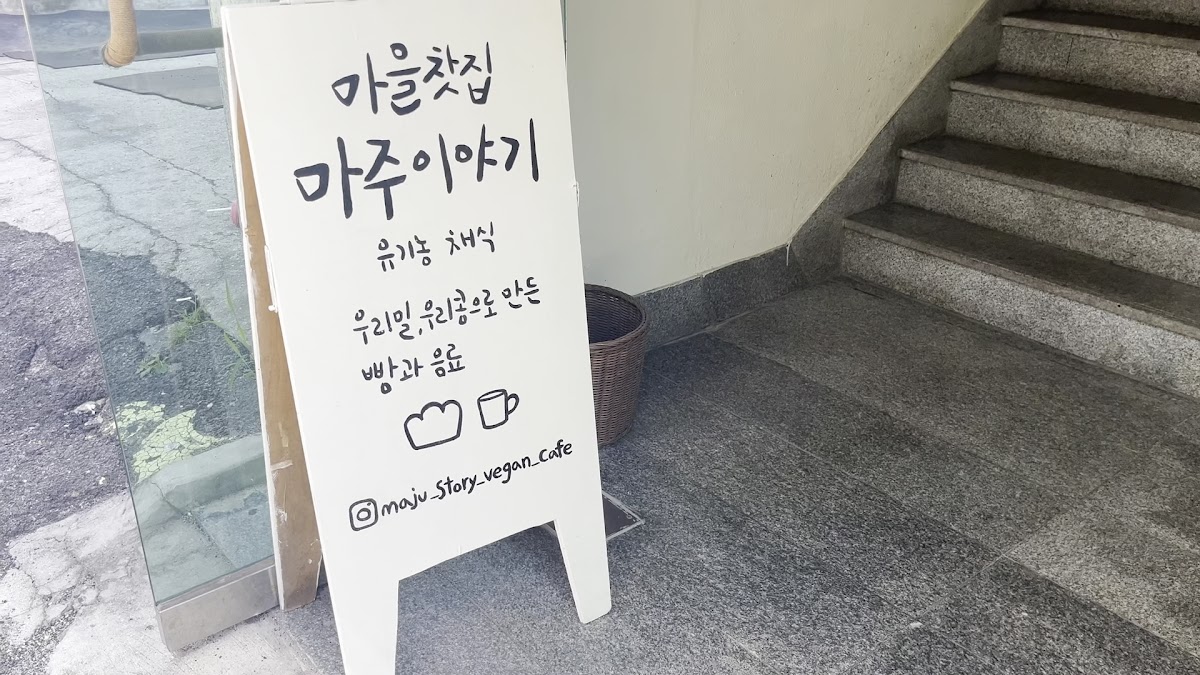 마을찻집
마주이야기
유기농 채식
우리밀,우리콩으로 만든
빵과 음료
maju_story_vegan_cafe